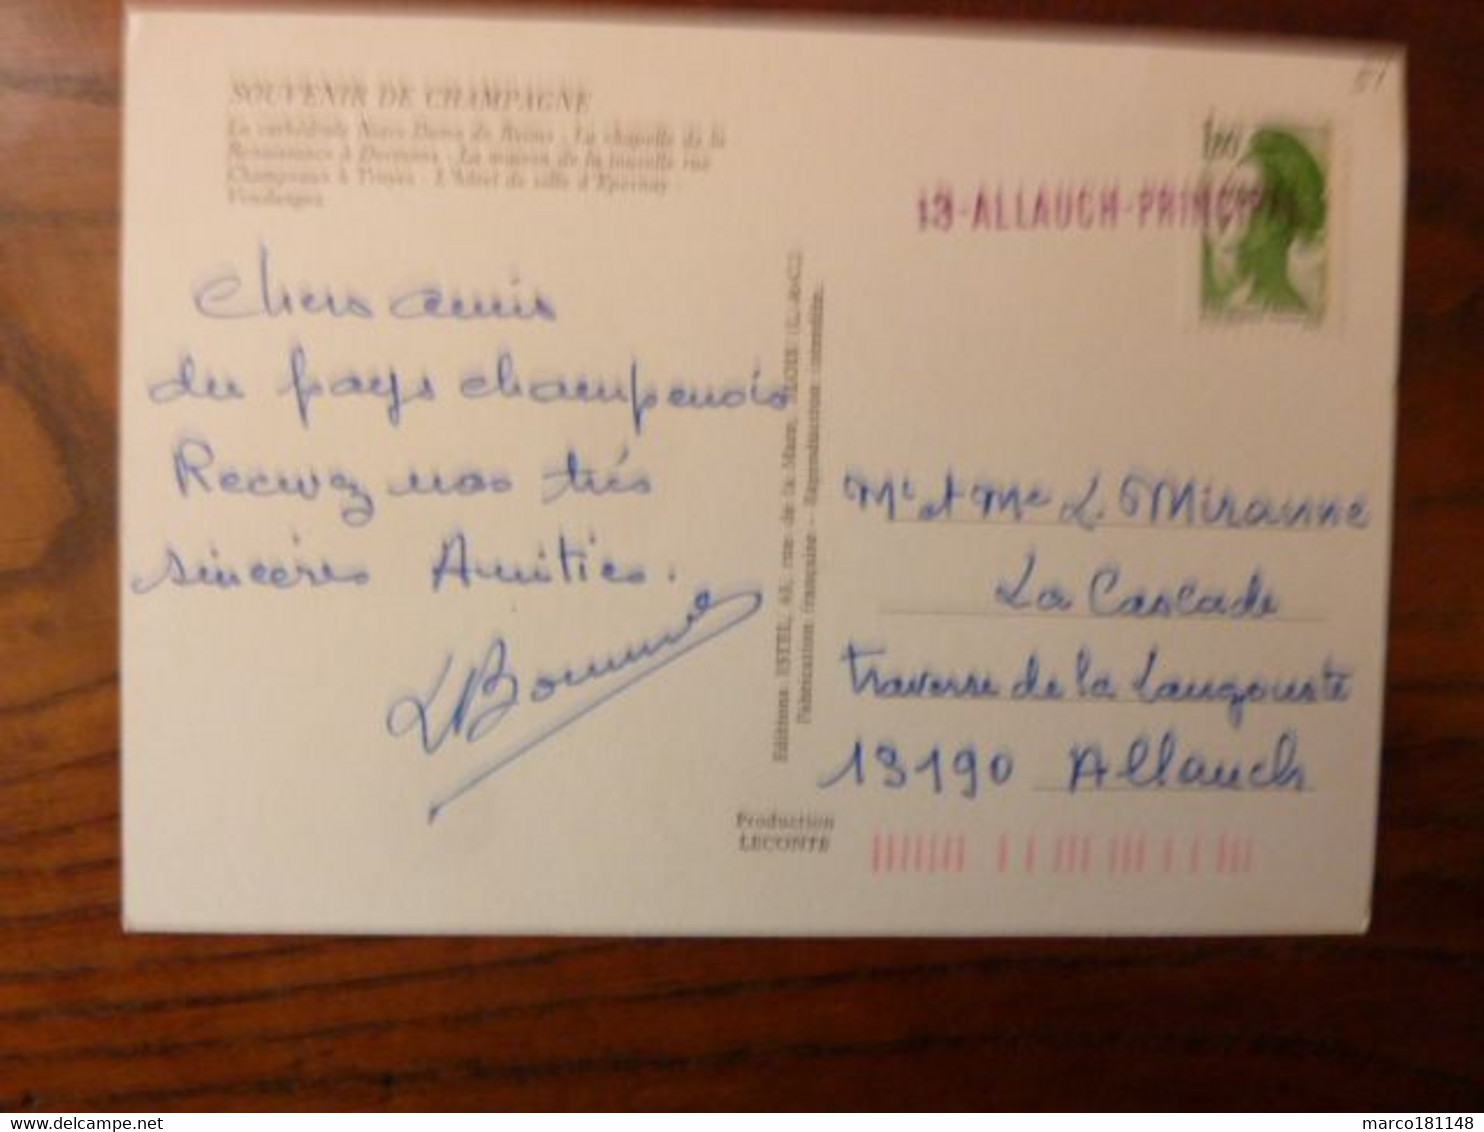 51
SOUVENIR DE CHAMPAGNE
La cathédrale Notre-Dame de Reims - La chapelle de la
Renaissance à Dormans - La maison de la tourelle rue
Champeaux à Troyes - L'hôtel de ville d'Epernay -
Vendanges
1,60
13-ALLAUCH-PRINCIPAL
Chers amis
du pays champenois
Recevez nos très
sincères Amitiés.
L Bonnne
Editions ESTEL, rue de la Mare, BLOIS
Fabrication française - Reproduction interdite.
Production
LECONTE
Mr et Me L Miranne
La Cascade
Traverse de la Langouste
13190 Allauch
marco181148